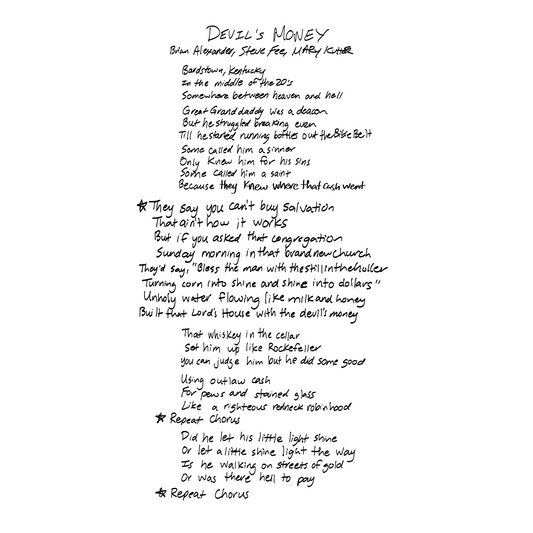 DEVIL'S MONEY
Brian Alexander, Steve Fee, MARY Kutter
Bardstown, Kentucky
In the middle of the 20's
Somewhere between heaven and hell
Great Granddaddy was a deacon
But he struggled breaking even
Till he started running bottles out the Bible Belt
Some called him a sinner
Only knew him for his sins
Some called him a saint
Because they knew where that cash went
☆ They say you can't buy Salvation
That ain't how it works
But if you asked that congregation
Sunday morning in that brand new church
They'd say, "Bless the man with the still in the holler
Turning corn into shine and shine into dollars"
Unholy water flowing like milk and honey
Built that Lord's House with the devil's money
That whiskey in the cellar
Set him up like Rockefeller
You can judge him but he did some good
Using outlaw cash
For pews and stained glass
Like a righteous redneck robinhood
☆ Repeat Chorus
Did he let his little light shine
Or let a little shine light the way
Is he walking on streets of gold
Or was there hell to pay
☆ Repeat Chorus